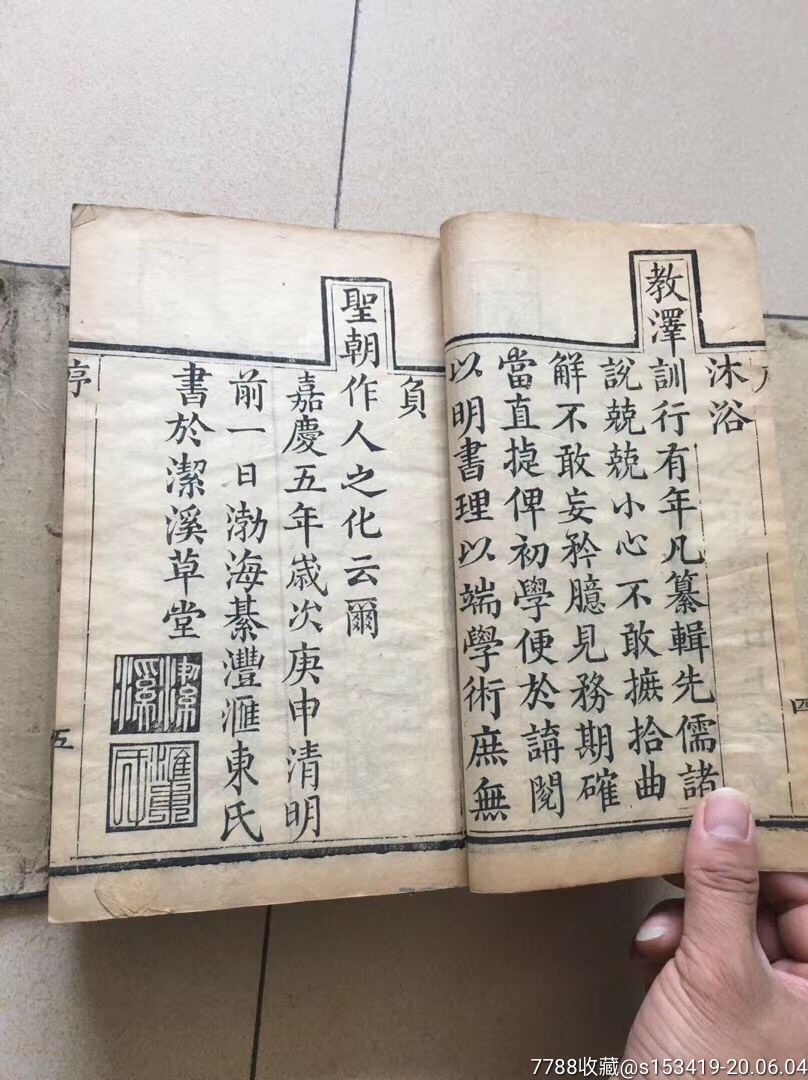 沐浴
教澤訓行有年凡纂輯先儒諸
說兢兢小心不敢摭拾曲
解不敢妄矜臆見務期確
當直捷俾初學便於誦閱
以明書理以端學術庶無
負
聖朝作人之化云爾
嘉慶五年歲次庚申清明
前一日渤海綦灃滙東氏
書於潔溪草堂
潔溪
滙東
序
五
四
7788收藏@s153419-20.06.04